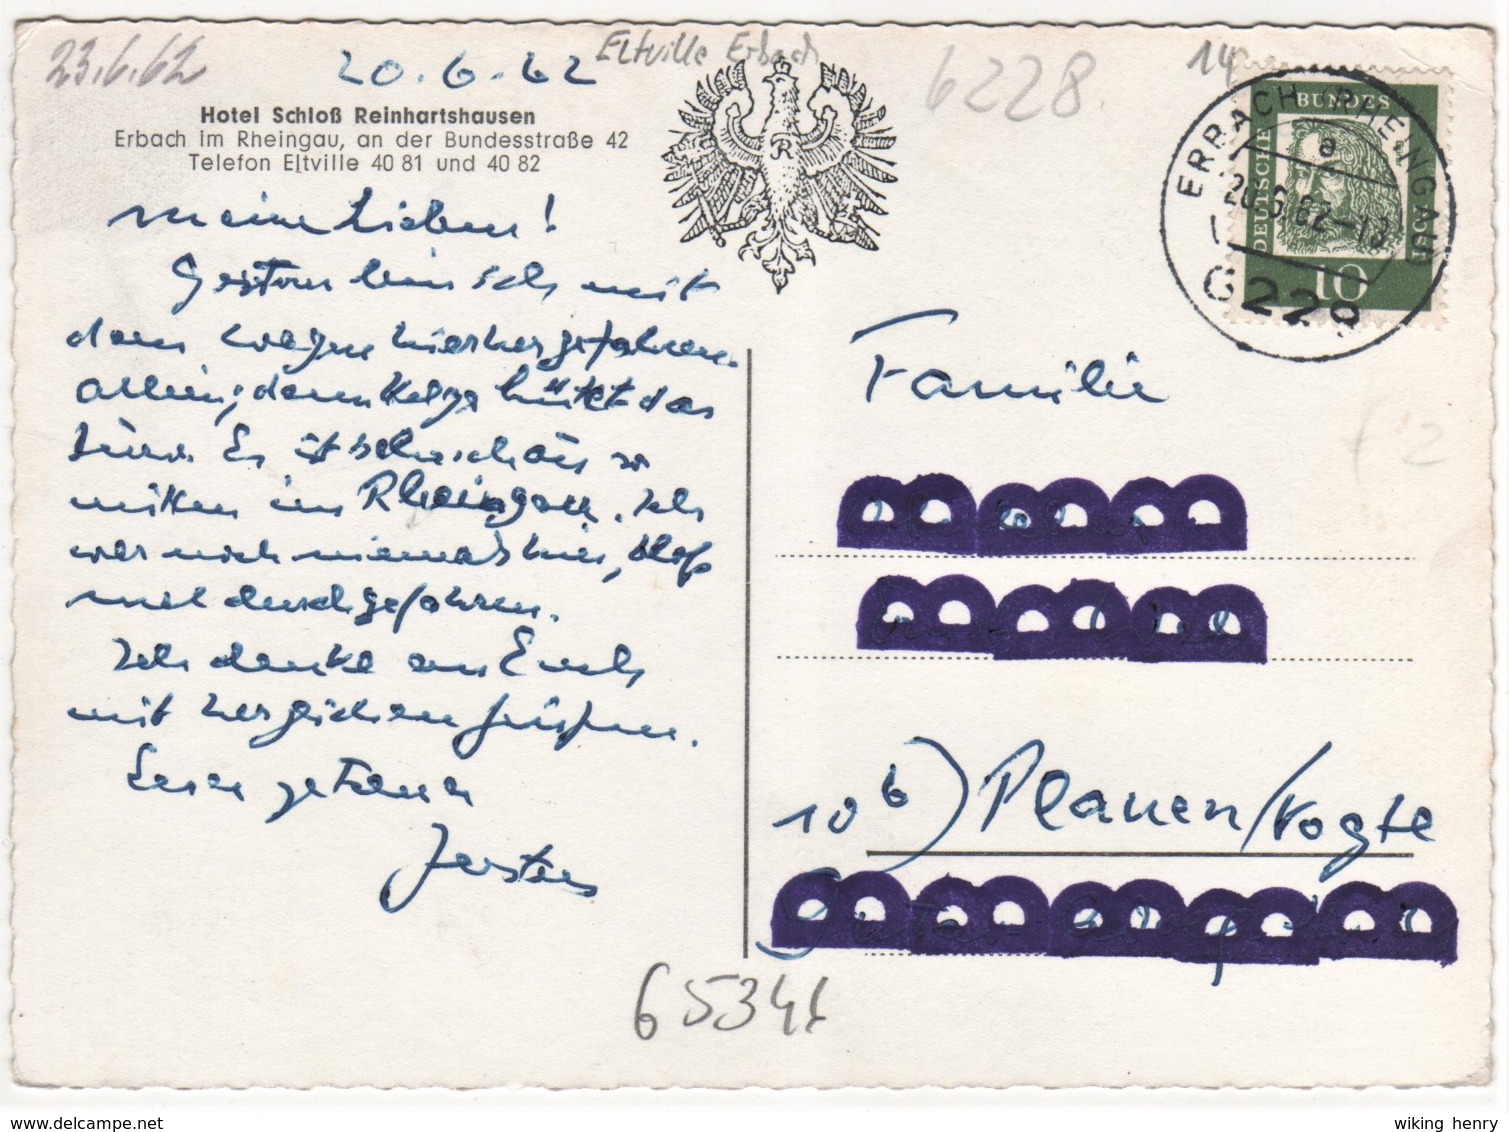 23.6.62
20.6.62
Eltville Erbach
6228.
14
Hotel Schloß Reinhartshausen
Erbach im Rheingau, an der Bundesstraße 42
Telefon Eltville 40 81 und 40 82
R
ERBACH (RHEINGAU)
a
20.6.62-18
6229
DEUTSCHE
BUNDES
10
meine Lieben!
Gestern bin ich mit
dem Wagen hierher gefahren
allein, denn Helga hütet das
Es ist sehr schön so
mitten im Rheingau. Ich
war noch niemals hier, bloß
mal durchgefahren.
Ich denke an Euch
mit herzlichen Grüßen.
Euer getreuer
Familie
10b) Plauen/Vogtl
65346
wiking henry